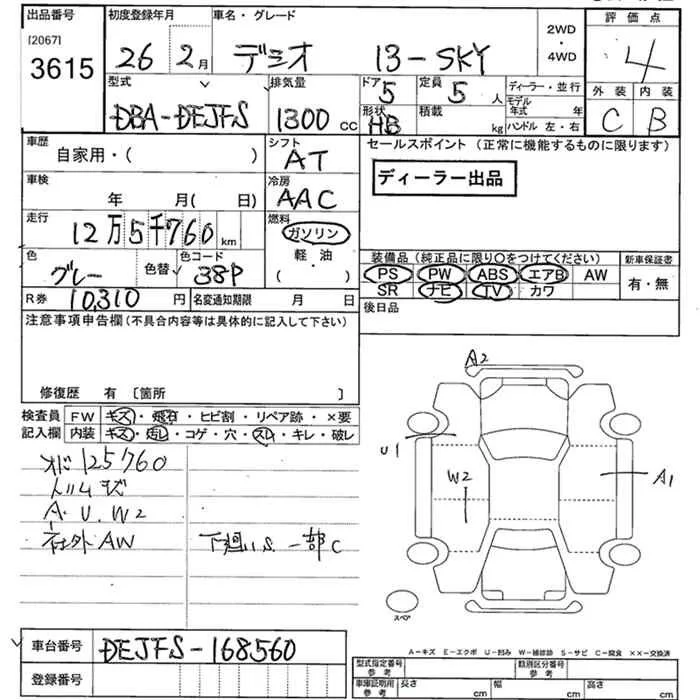 出品番号 初度登録年月 車名・グレード 評価点
[2067]
3615 26 2月 デミオ 13-SKY 2WD・4WD 4
型式 排気量 ドア 定員 ディーラー・並行 外装 内装
DBA-DEJFS 1300 cc 5 5 人 モデル年式 年 C B
形状 積載
HB kg ハンドル 左・右
車歴 シフト セールスポイント (正常に機能するものに限ります)
自家用・( ) AT
ディーラー出品
車検 冷房
年 月( 日) AAC
走行 燃料
12万5千760 km ガソリン
軽油
( )
色 色替 色コード
グレー 38P
装備品 (純正品に限り○をつけてください) 新車保証書
PS PW ABS エアB AW 有・無
SR ナビ TV カワ
R券 10,310 円 名変通知期限 月 日
後日品
注意事項申告欄 (不具合内容等は具体的に記入して下さい)
修復歴 有 〔箇所 〕
検査員 FW キズ・飛石・ヒビ割・リペア跡・×要
記入欄 内装 キズ・汚レ・コゲ・穴・スレ・キレ・破レ
オド125760
A.U.W2
社外AW 下廻りS.一部C
A2
U1
W2
A1
スペア
車台番号 DEJFS-168560
登録番号
A-キズ E-エクボ U-凹み W-補修跡 S-サビ C-腐食 ××-交換済
型式指定番号 参考 類別区分番号 参考
車庫証明用 参考 長さ cm 幅 cm 高さ cm